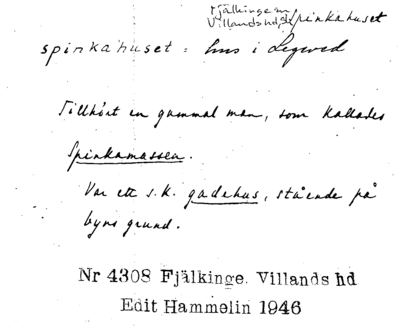 Fjälkinge sn
Villands hd Sk Spinkahuset
spinkahuset = hus i Legeved
Tillhört en gammal man, som kallades
Spinkamassen.
Var ett s.k. gadehus, stående på
byns grund.
Nr 4308 Fjälkinge. Villands hd
Edit Hammelin 1946